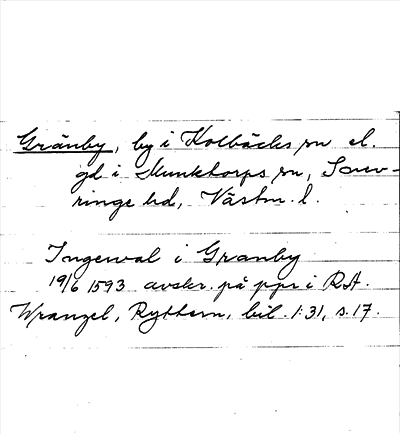 Gränby, by i Kolbäcks sn el.
gd i Munktorps sn, Snev-
ringe hd, Västm. l.
Ingewal i Granby
19/6 1593 avskr. på ppr i RA.
Wrangel, Ryttern, bil. 1:31, s. 17.